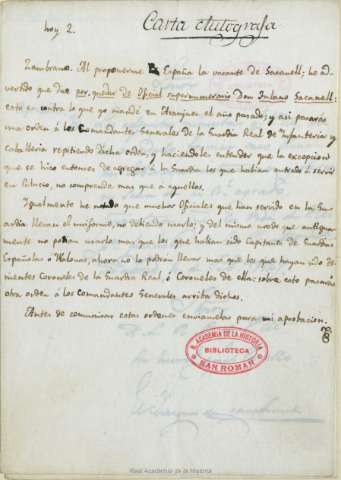 Carta Autografa
hoy 2.
Zambrano. Al proponerme España la vacante de Sacanell; he ad-
vertido que dice por quedar de Oficial supernumerario Don Juliano Sacanell;
esto es contra lo que yo mandé en Aranjuez el año pasado; y asi pasarás
una orden á los Comandantes Generales de la Guardia Real de Infanteria y
Caballeria repitiendo dicha orden, y haciendoles entender que la excepcion
que se hizo entonces de agregar á la Guardia los que habian entrado á servir
en Palacio, no comprende mas que á aquellos.
Igualmente he notado que muchos Oficiales que han servido en la Gu-
ardia llevan el uniforme, no debiendo usarlo; y del mismo modo que antigua-
mente no podian usarlo mas que los que habian sido Capitanes de Guardias
Españolas ó Walonas, ahora no lo podran llevar mas que los que hayan sido te-
nientes Coroneles de la Guardia Real, ó Coroneles de ella: sobre esto pasarás
otra orden á los Comandantes Generales arriba dichos.
Antes de comunicar estas ordenes enviamelas para mi aprobacion.
R. ACADEMIA DE LA HISTORIA
BIBLIOTECA
SAN ROMAN
Real Academia de la Historia